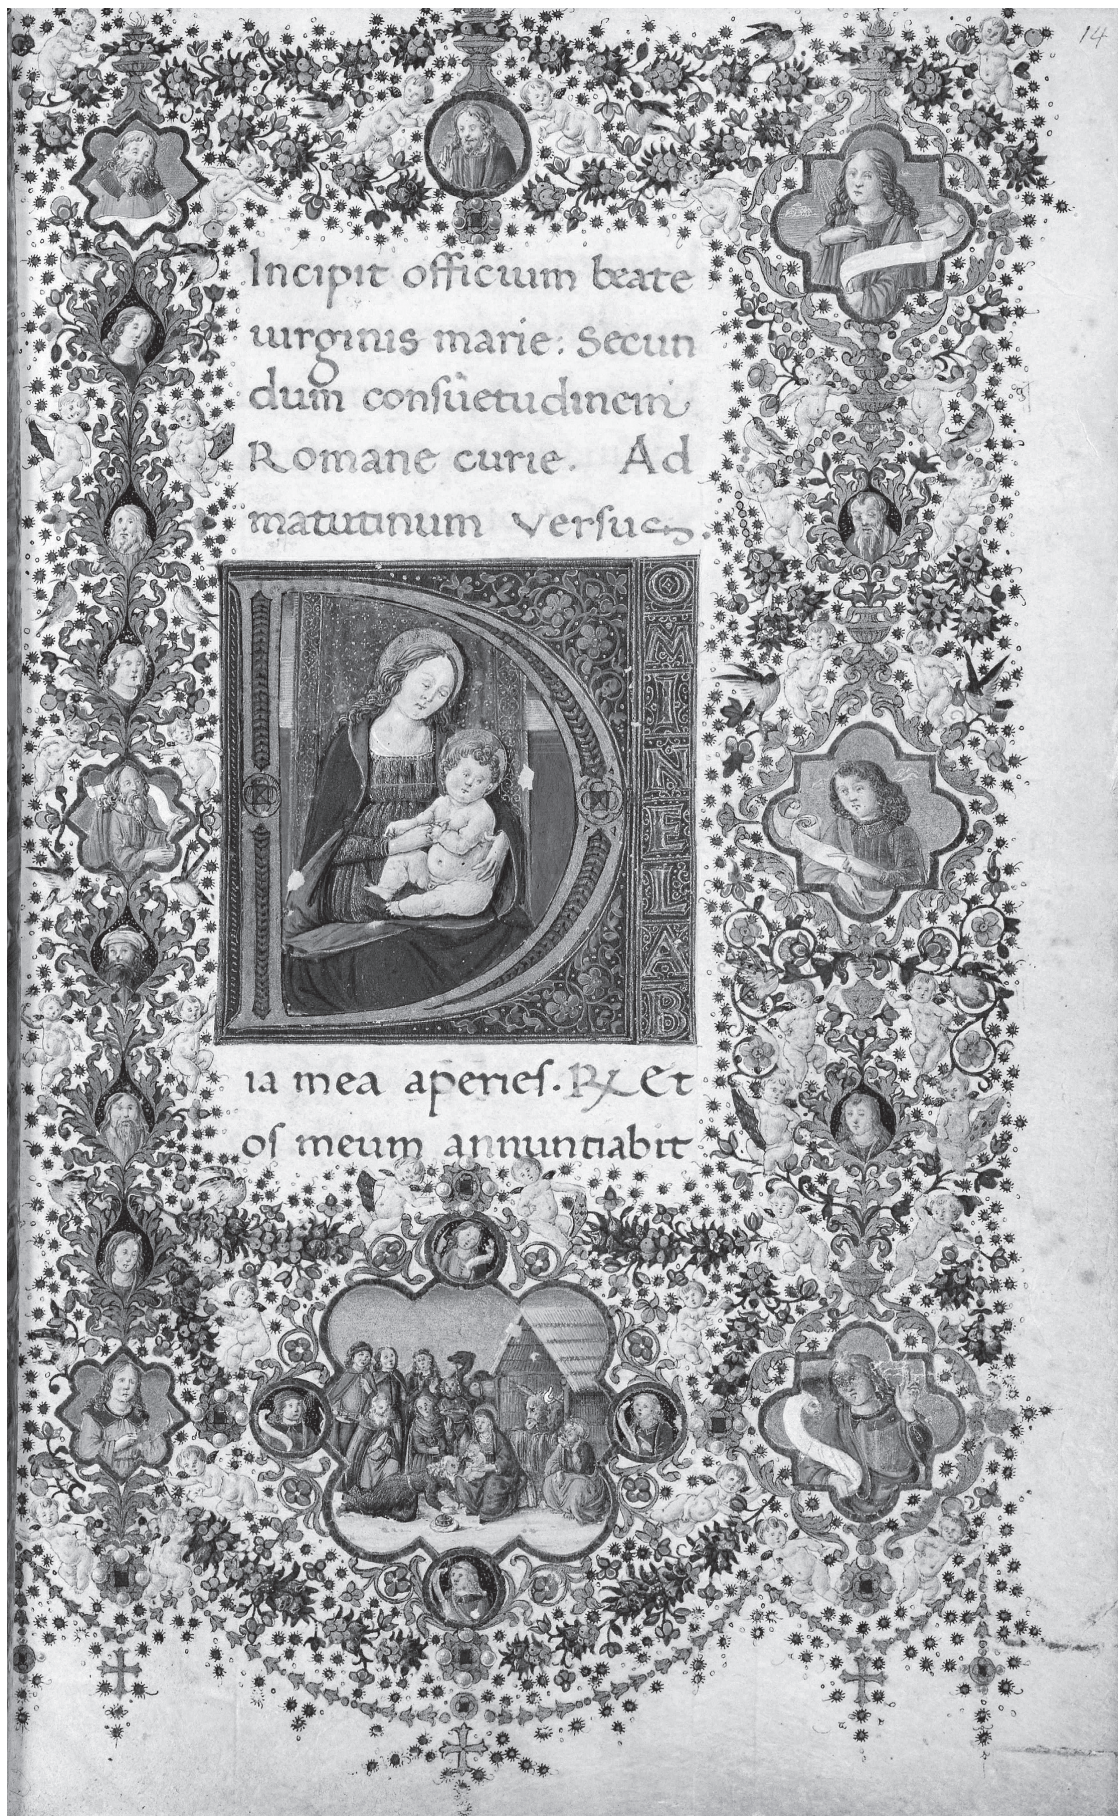 14
Incipit officium beate
uirginis marie: Secun
dum consuetudinem
Romane curie. Ad
matutinum versus.
D
OMINELAB
ia mea aperies. ℟ Et
os meum annuntiabit